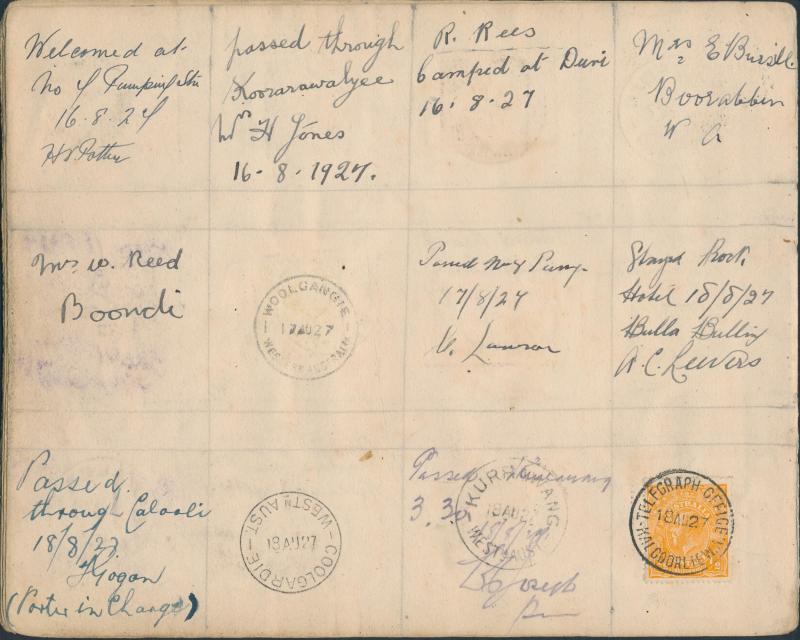 Welcomed at
No 4 Pumping Stn
16.8.27
passed through
Koorarawalyee
Mrs H Jones
16-8-1927.
R. Rees
Camped at Duri
16.8.27
Mrs E
Boorabbin
W A
Mrs W. Reed
Boondi
WOOLGANGIE
17 AU 27
WESTERN AUSTRALIA
Passed No 7 Pump.
17/8/27
C. Lawson
Stayed Rock
Hotel 18/8/27
Bulla Bulling
A. C. Leevers
Passed
through Calooli
18/8/27
Hogan
(Porter in Charge)
COOLGARDIE
18 AU 27
WESTN AUST.
Passed
3.30
18/8/27
Joseph
KURRAWANG
18 AU 27
WEST. AUST.
TELEGRAPH OFFICE
18 AU 27
KALGOORLIE W.A.